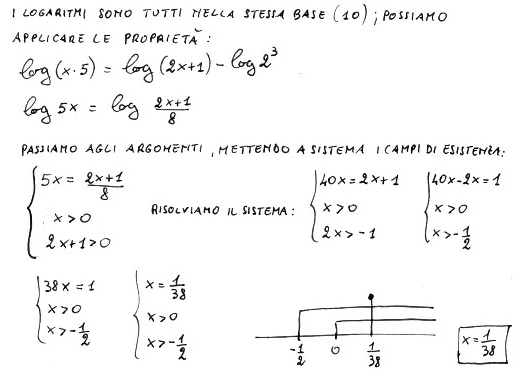 I LOGARITMI SONO TUTTI NELLA STESSA BASE (10) ; POSSIAMO
APPLICARE LE PROPRIETÀ :
log (x·5) = log (2x+1) - log 2³
log 5x = log (2x+1)/8
PASSIAMO AGLI ARGOMENTI, METTENDO A SISTEMA I CAMPI DI ESISTENZA:
{ 5x = (2x+1)/8
x>0
2x+1>0
RISOLVIAMO IL SISTEMA :
{ 40x = 2x+1
x>0
2x>-1
{ 40x-2x=1
x>0
x>-1/2
{ 38x = 1
x>0
x>-1/2
{ x = 1/38
x>0
x>-1/2
-1/2 0 1/38
x = 1/38